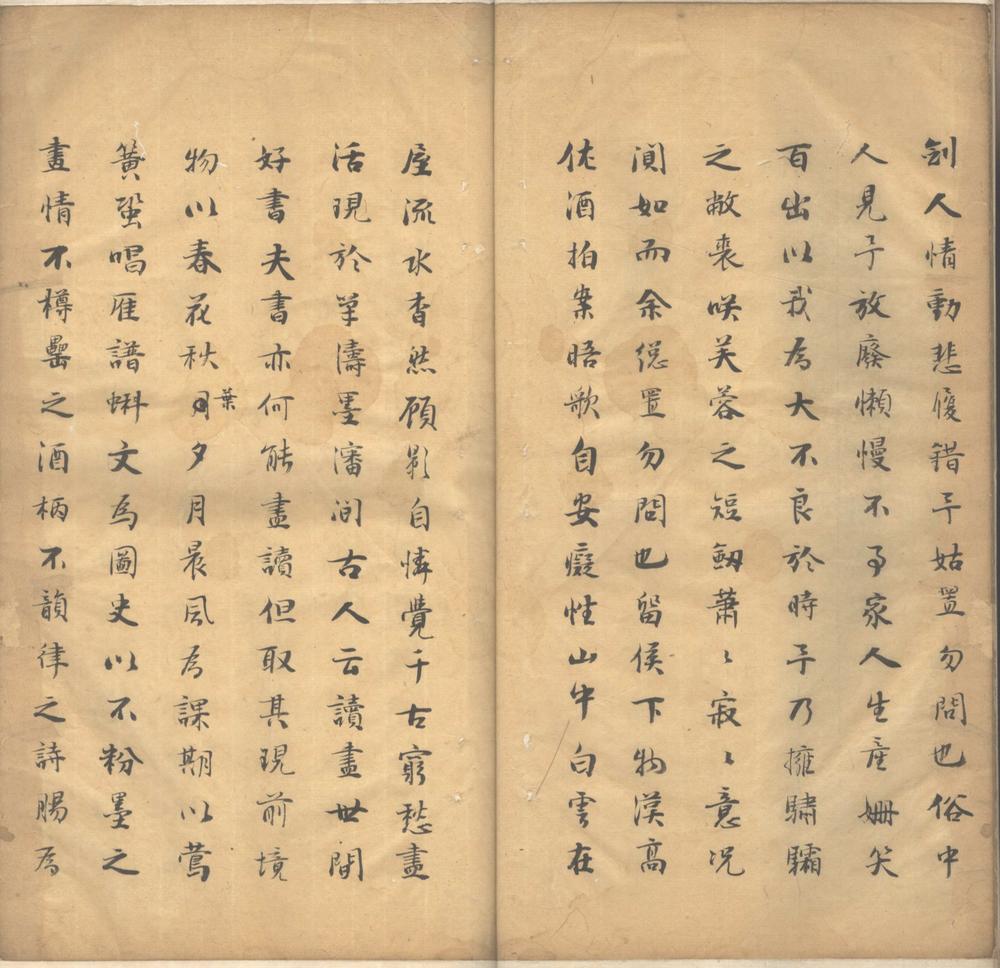 劊人情動悲履錯予姑置勿問也俗中
人見予放廢懶慢不事家人生產姍笑
百出以我為大不良於時予乃擁驌驦
之敝裘咲芙蓉之短劔蕭〻寂〻意况
澒如而余總置勿問也留侯下物漢高
佐酒拍案晤歌自安癡性山中白雲在
屋流水杳然顧影自憐覺千古窮愁盡
活現於筆濤墨瀋间古人云讀盡世間
好書夫書亦何能盡讀但取其現前境
物以春花秋葉月夕月晨風為課期以鶯
簧蛩唱雁譜蝌文為圖史以不粉墨之
畫情不樽罍之酒柄不韻律之詩腸為